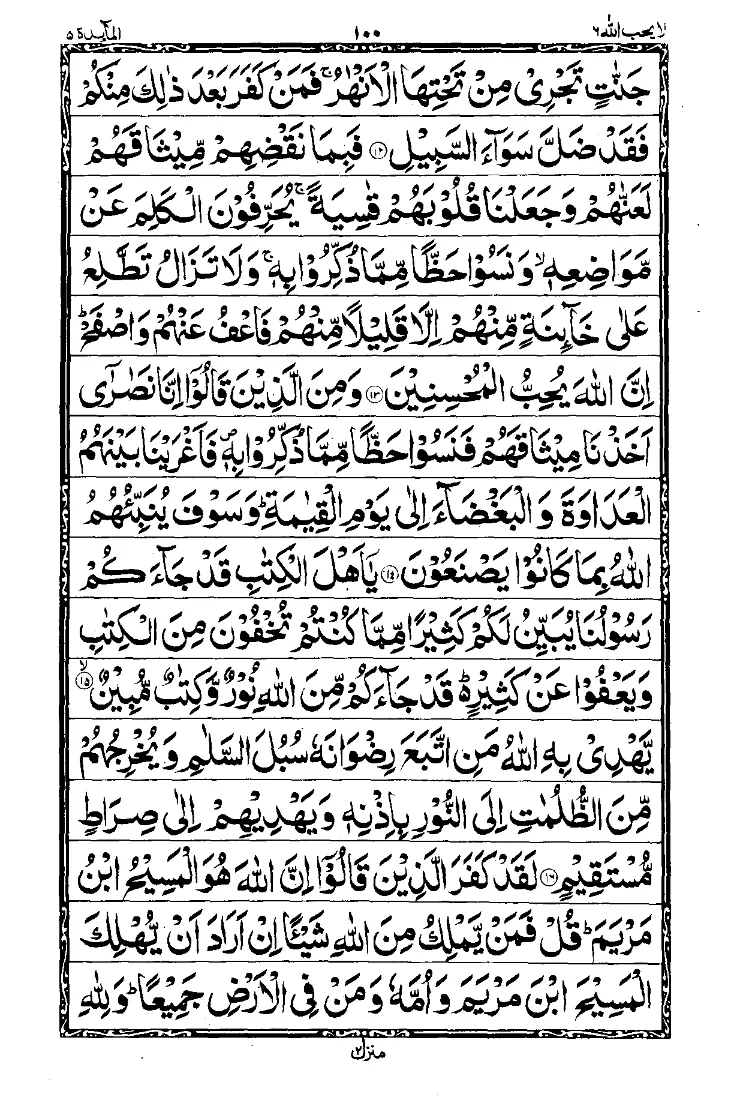 لا يحب الله ٦ ١٠٠ المآئدة ٥
جَنّٰتٍ تَجْرِیْ مِنْ تَحْتِهَا الْاَنْهٰرُ ۚ فَمَنْ كَفَرَ بَعْدَ ذٰلِكَ مِنْكُمْ
فَقَدْ ضَلَّ سَوَآءَ السَّبِیْلِ ﴿۱۲﴾ فَبِمَا نَقْضِهِمْ مِّیْثَاقَهُمْ
لَعَنّٰهُمْ وَ جَعَلْنَا قُلُوْبَهُمْ قٰسِیَةً ۚ یُحَرِّفُوْنَ الْكَلِمَ عَنْ
مَّوَاضِعِهٖ ۙ وَ نَسُوْا حَظًّا مِّمَّا ذُكِّرُوْا بِهٖ ۚ وَ لَا تَزَالُ تَطَّلِعُ
عَلٰی خَآىِٕنَةٍ مِّنْهُمْ اِلَّا قَلِیْلًا مِّنْهُمْ فَاعْفُ عَنْهُمْ وَ اصْفَحْ ؕ
اِنَّ اللّٰهَ یُحِبُّ الْمُحْسِنِیْنَ ﴿۱۳﴾ وَ مِنَ الَّذِیْنَ قَالُوْۤا اِنَّا نَصٰرٰۤی
اَخَذْنَا مِیْثَاقَهُمْ فَنَسُوْا حَظًّا مِّمَّا ذُكِّرُوْا بِهٖ ۪ فَاَغْرَیْنَا بَیْنَهُمُ
الْعَدَاوَةَ وَ الْبَغْضَآءَ اِلٰی یَوْمِ الْقِیٰمَةِ ؕ وَ سَوْفَ یُنَبِّئُهُمُ
اللّٰهُ بِمَا كَانُوْا یَصْنَعُوْنَ ﴿۱۴﴾ یٰۤاَهْلَ الْكِتٰبِ قَدْ جَآءَكُمْ
رَسُوْلُنَا یُبَیِّنُ لَكُمْ كَثِیْرًا مِّمَّا كُنْتُمْ تُخْفُوْنَ مِنَ الْكِتٰبِ
وَ یَعْفُوْا عَنْ كَثِیْرٍ ؕ۬ قَدْ جَآءَكُمْ مِّنَ اللّٰهِ نُوْرٌ وَّ كِتٰبٌ مُّبِیْنٌ ﴿ۙ۱۵﴾
یَّهْدِیْ بِهِ اللّٰهُ مَنِ اتَّبَعَ رِضْوَانَهٗ سُبُلَ السَّلٰمِ وَ یُخْرِجُهُمْ
مِّنَ الظُّلُمٰتِ اِلَی النُّوْرِ بِاِذْنِهٖ وَ یَهْدِیْهِمْ اِلٰی صِرَاطٍ
مُّسْتَقِیْمٍ ﴿۱۶﴾ لَقَدْ كَفَرَ الَّذِیْنَ قَالُوْۤا اِنَّ اللّٰهَ هُوَ الْمَسِیْحُ ابْنُ
مَرْیَمَ ؕ قُلْ فَمَنْ یَّمْلِكُ مِنَ اللّٰهِ شَیْـًٔا اِنْ اَرَادَ اَنْ یُّهْلِكَ
الْمَسِیْحَ ابْنَ مَرْیَمَ وَ اُمَّهٗ وَ مَنْ فِی الْاَرْضِ جَمِیْعًا ؕ وَ لِلّٰهِ
منزل ٢